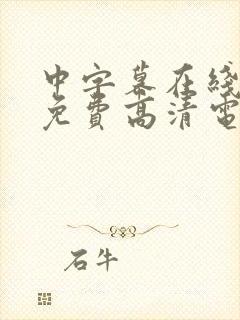 中字幕在线
免費高清電
石牛